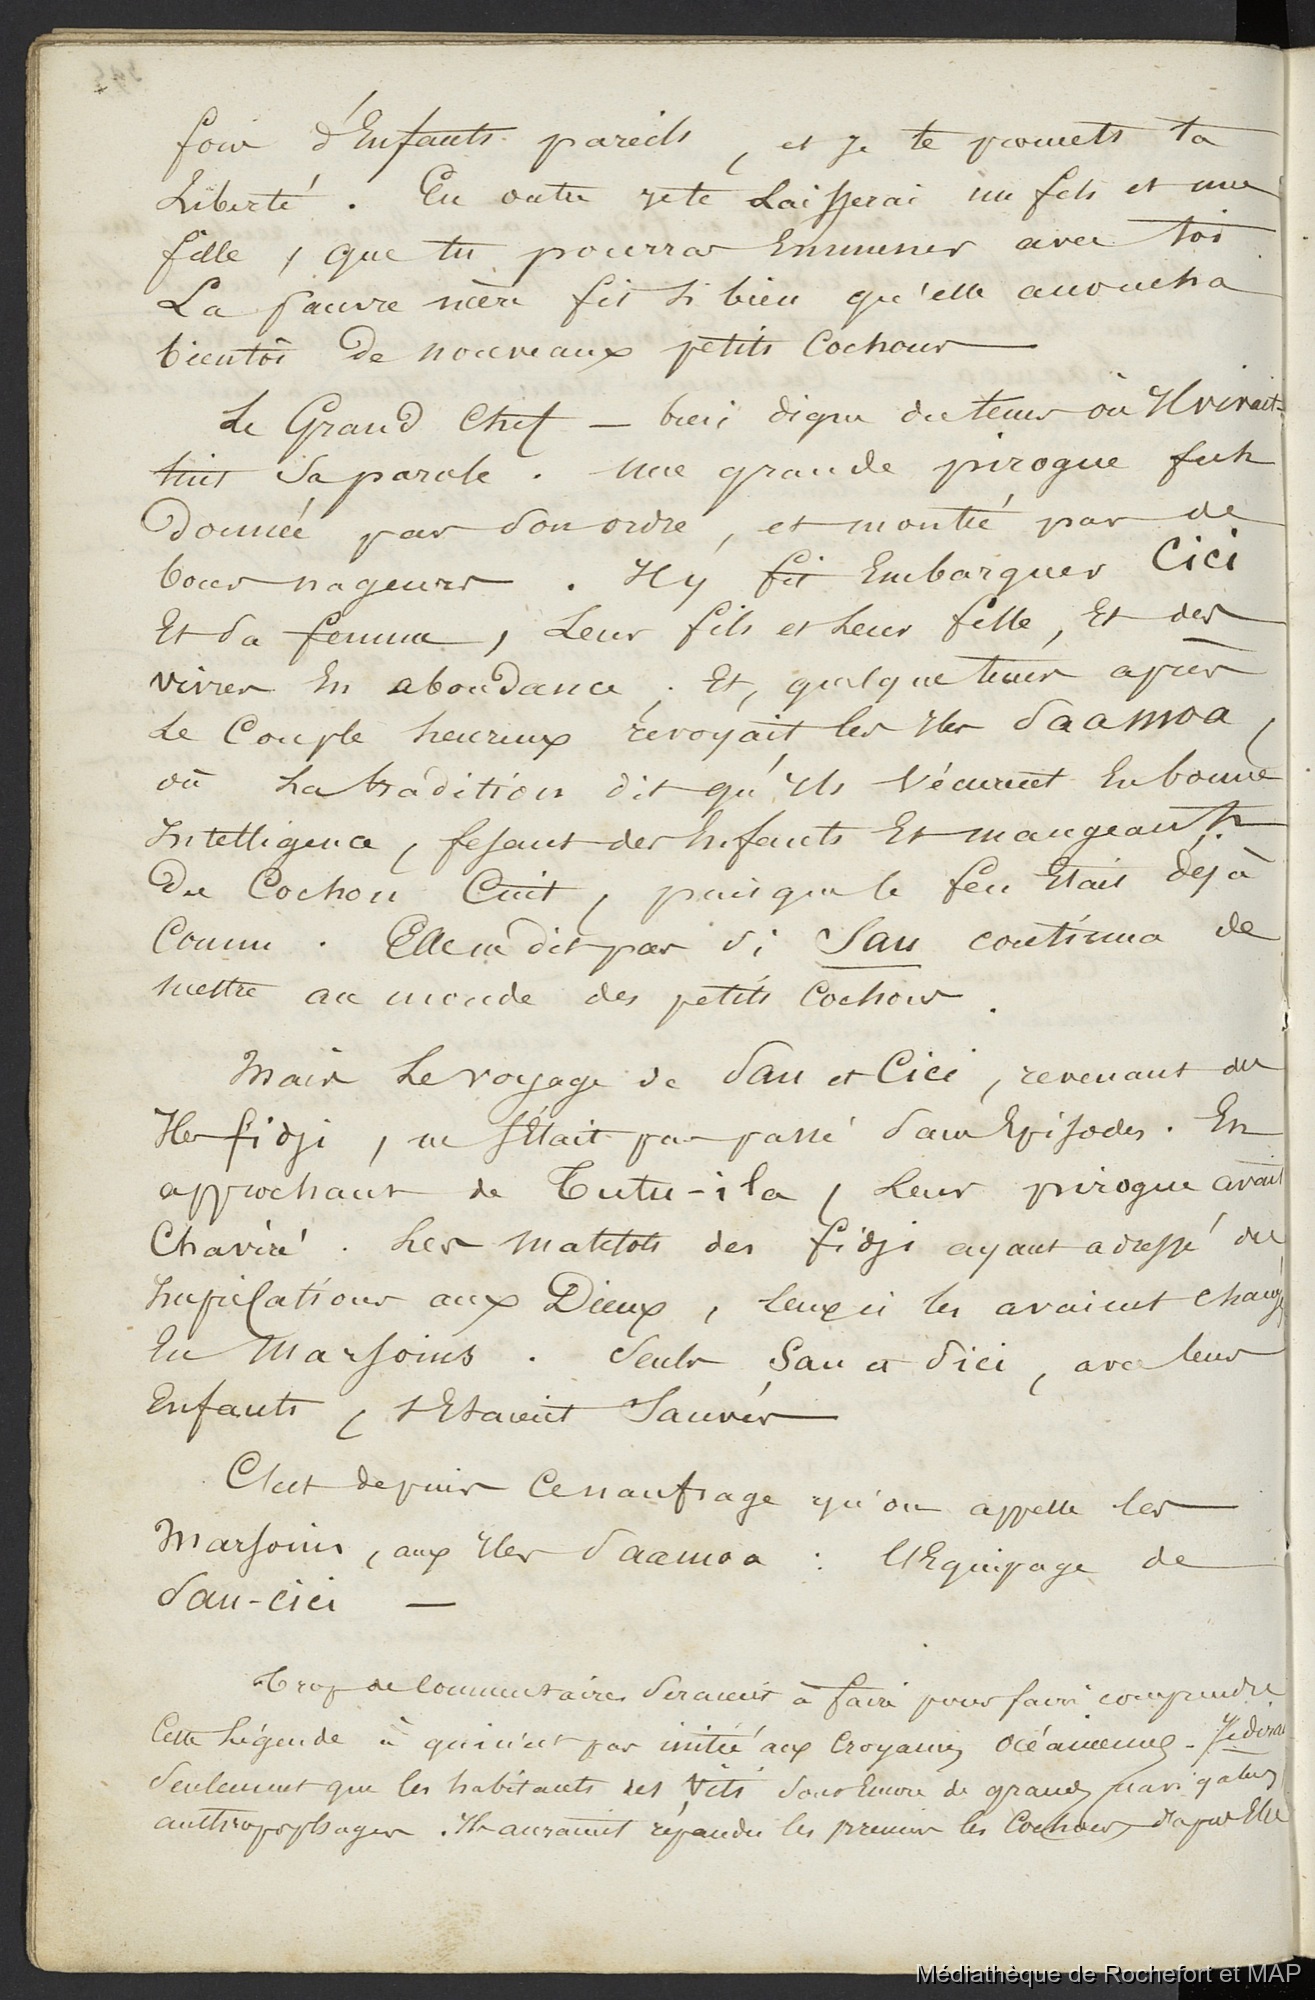 fois d'Enfants pareils, et je te promets ta
Liberté. En outre je te Laisserai un fils et une
fille, que tu pourras Emmener avec toi
La pauvre mère fit si bien qu'elle accoucha
bientôt De nouveaux petits Cochons —
Le Grand Chef — bien digne du tems où Il vivait —
tint Sa parole. Une grande pirogue fut
Donnée par Son ordre, et monté par de
bons nageurs. Il y fit Embarquer Cici
Et Sa femme, Leur fils et Leur fille, Et des
vivres En abondance. Et, quelque tems après
Le Couple heureux revoyait les Iles Saamoa,
où La tradition dit qu'Ils Vécurent En bonne
Intelligence, fesant des Enfants Et mangeant
Du Cochon Cuit, puisque le feu Etait Déjà
Connu. Elle ne dit pas Si Sau continua de
mettre au monde des petits Cochons.
Mais Le voyage de Sau et Cici, revenant des
Iles fidji, ne S'Etait pas passé Sans Episodes. En
approchant de Tutu-ila, Leur pirogue avait
Chaviré. Les Matelots des fidji ayant adressé des
Supplications aux Dieux, Ceux ci les avaient changé
En Marsoins. Seuls Sau et Sici, avec leurs
Enfants, s'Etaient Sauvés —
C'est depuis Ce naufrage qu'on appelle les —
Marsoins, aux Iles Saamoa : l'Equipage de
Sau-cici —
Trop de Commentaires Seraient à faire pour faire comprendre
Cette Légende à qui n'est pas initié aux Croyances Océaniennes - Je dirai
Seulement que les habitants des Viti Sont Encore de grands navigateurs
anthropophages. Ils auraient répandu les premiers les Cochons, d'après Elle
Médiathèque de Rochefort et MAP